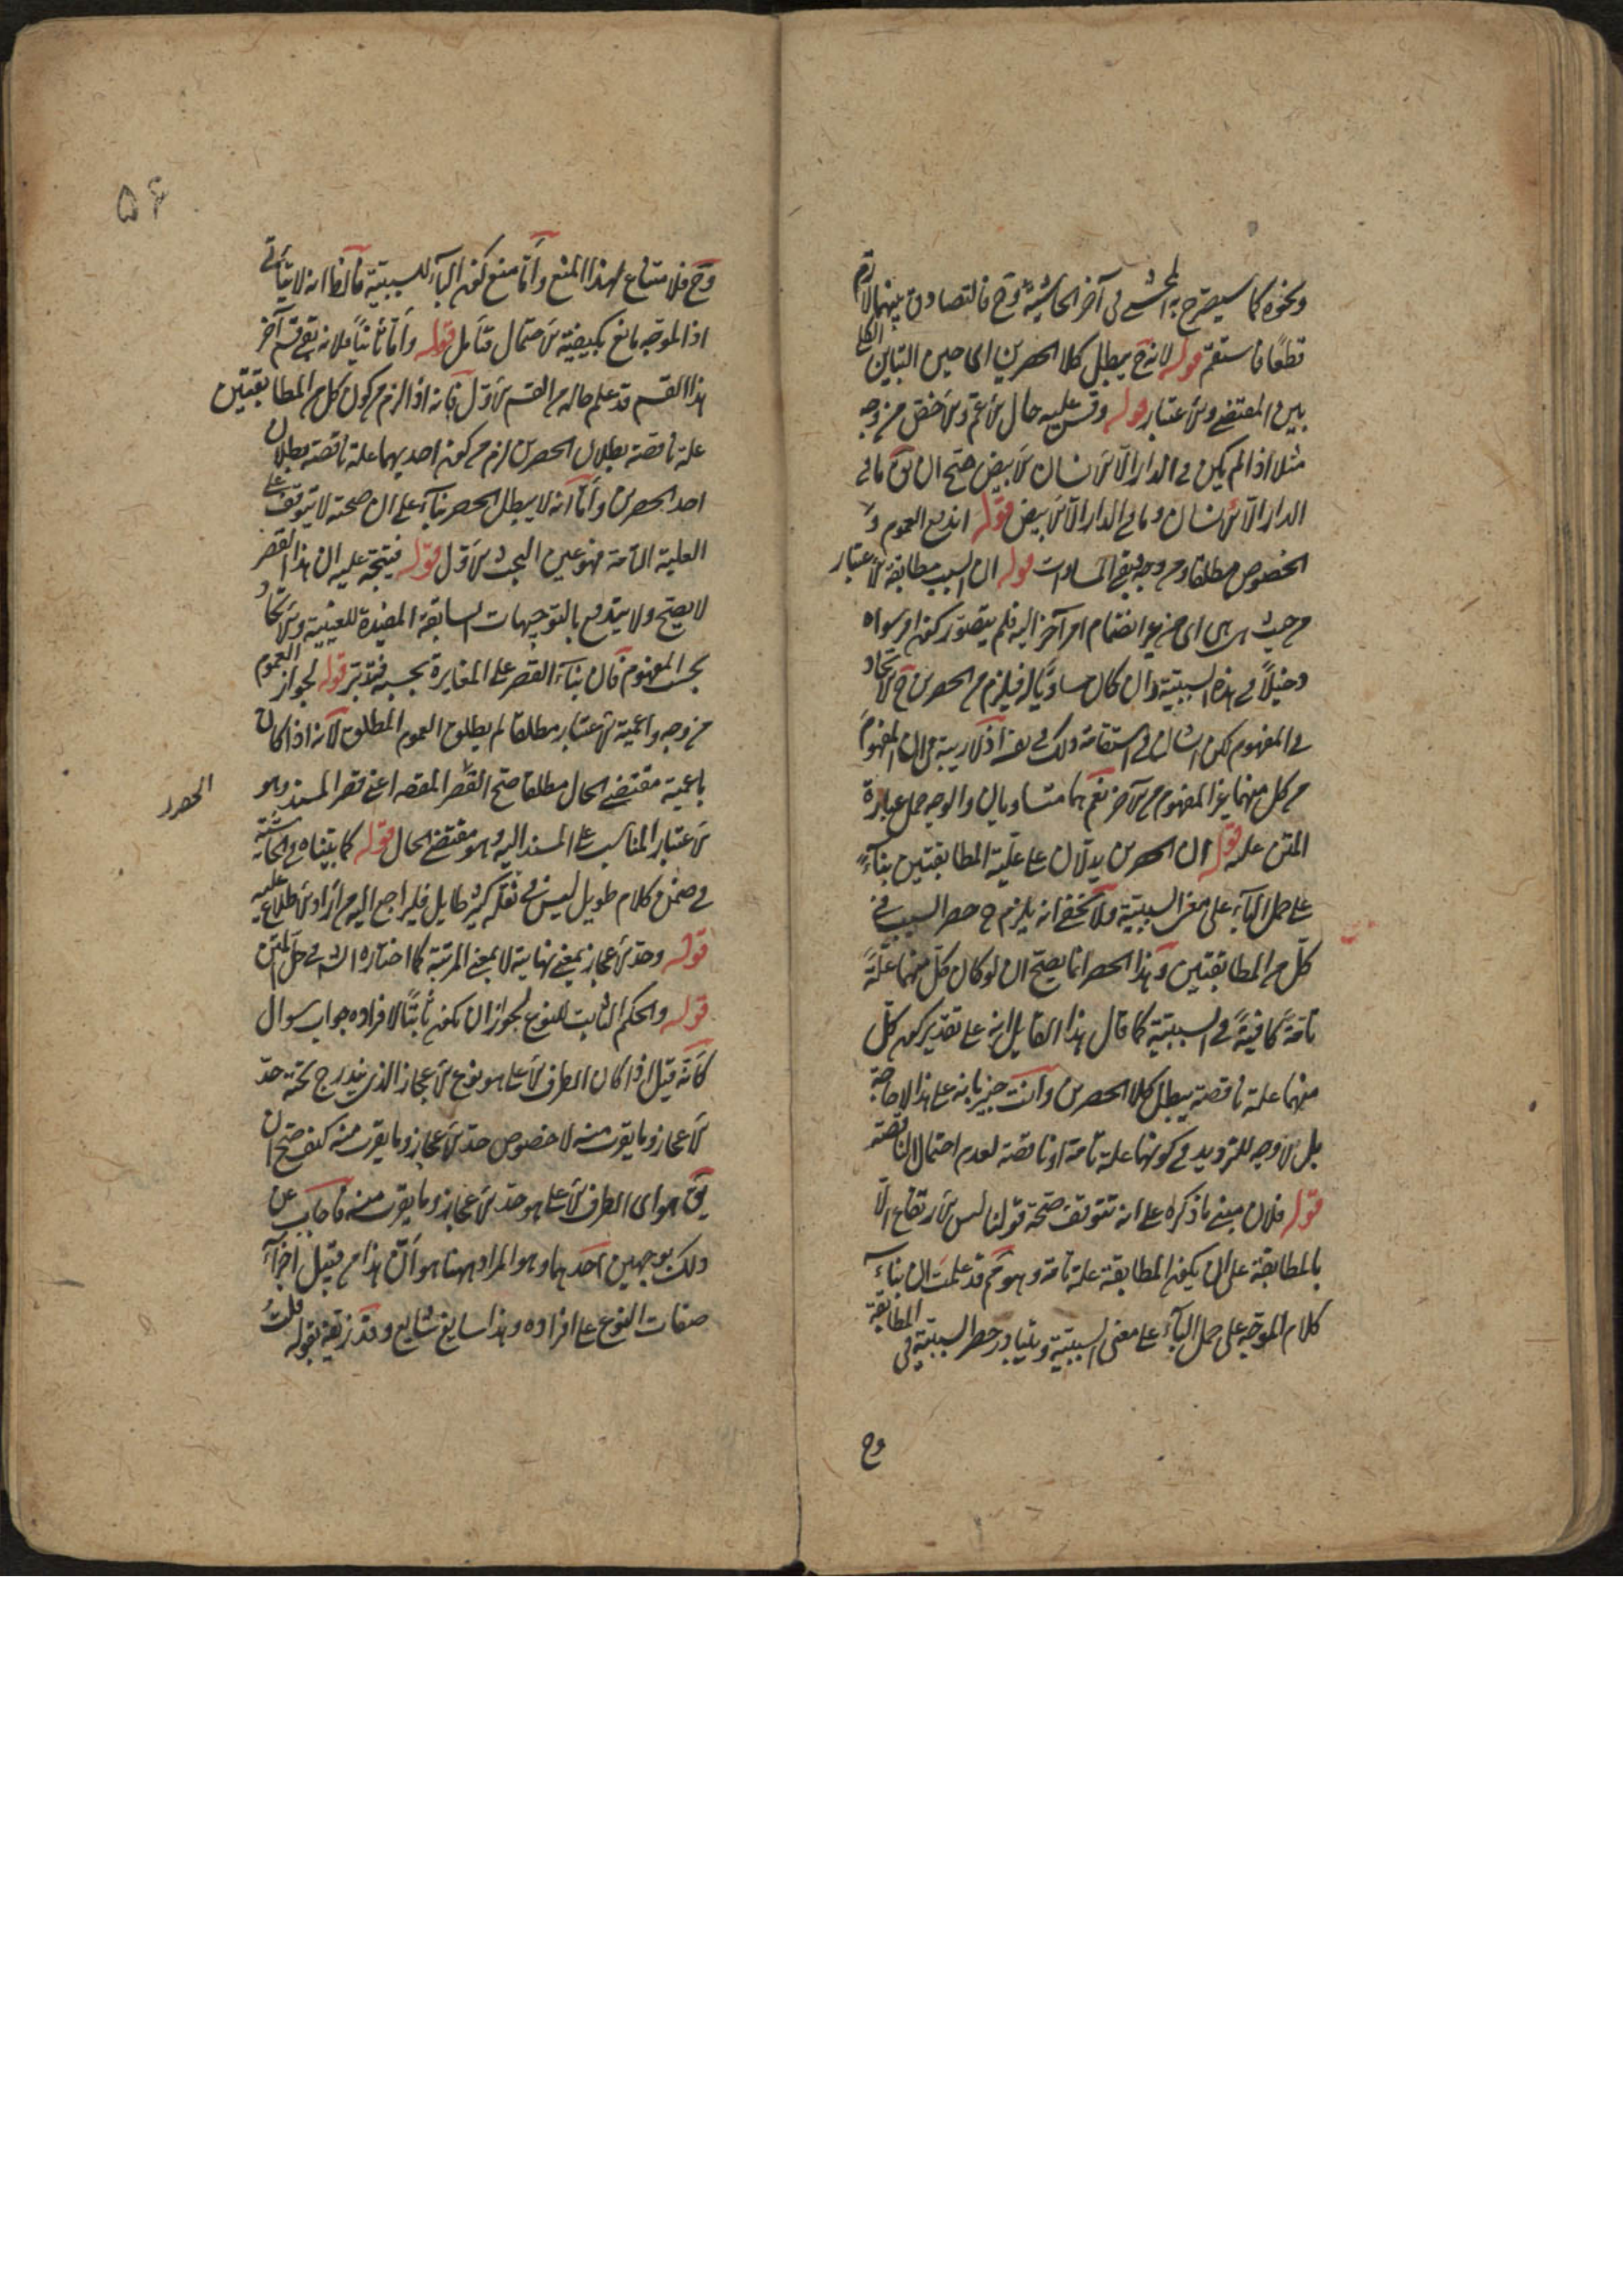 ونحوه كما سيصرح به المحشى فى آخر الحاشية وح فالتصادق بينهما لازم
قطعًا فاستقم قوله لانه ح يبطل كلا الحصرين اى حين التباين الكلى
بين المقتضى والاعتبار قوله وقس عليه حال الاعم والاخص من وجه
مثلا اذا لم يكن فى الدار الا الانسان الابيض صح ان يق ما فى
الدار الا الانسان وما فى الدار الا الابيض قوله اندفع العموم و
الخصوص مطلقا ومن وجه فبقى المساوات قوله ان السبب مطابقة الاعتبار
من حيث هى هى اى من غير انضمام امر آخر اليه فلم يتصور كون امر سواه
دخيلاً فى هذه السببية وان كان مساويًا له فيلزم من الحصرين ح الاتحاد
فى المفهوم لكن الشان فى استقامة ذلك فى نفسه اذ لا ريبة فى ان المفهوم
من كل منهما غير المفهوم من الآخر نعم هما متساويان والوجه حمل عبارة
المتن عليه قوله ان الحصرين يدلان على علية المطابقتين بناءً
على حمل الباء على معنى السببية ولا يخفى انه يلزم ح حصر السبب فى
كل من المطابقتين وهذا الحصر انما يصح ان لو كان كل منهما علةً
تامةً كافيةً فى السببية كما قال هذا القايل انه على تقدير كون كل
منهما علة ناقصة يبطل كلا الحصرين وانت خبير بانه على هذا لا حاجة
بل لا وجه للترديد فى كونهما علة تامة او ناقصة لعدم احتمال الناقصة
قوله فلان مبنى ما ذكره على انه تتوقف صحة قولنا ليس الارتفاع الا
بالمطابقة على ان يكون المطابقة علة تامة وهو مم قد علمت ان بناء
كلام الموجه على حمل الباء على معنى السببية ويتبادر حصر السببية فى المطابقة
وح
۵۶
وح فلا متسع لهذا المنع واما منع كون الباء للسببية فالظ انه لا يتأتى
اذ الموجه مانع يكيفيه الاحتمال فتأمل قوله واما ثانيًا فلانه بقى قسم آخر
هذا القسم قد علم حاله من القسم الاول فانه اذا لزم من كون كل من المطابقتين
علة ناقصة بطلان الحصرين لزم من كون احديهما علة ناقصة بطلان
احد الحصرين واما انه لا يبطل الحصر بناء على ان صحته لا يتوقف على
العلية التامة فهو عين البحث الاول قوله فيتجه عليه ان هذا القصر
لا يصح ولا يندفع بالتوجيهات السابقة المفيدة للعينية والاتحاد
بحسب المفهوم فان بناء القصر على المغايرة بحسبه فتدبر قوله لجواز العموم
من وجه واعمية الاعتبار مطلقا لم يطلق العموم المطلق لانه اذا كان
باعمية مقتضى الحال مطلقا صح القصر المقصود اعنى قصر المسند وهو
الحصرر
الاعتبار المناسب على المسند اليه وهو مقتضى الحال قوله كما بيناه فى الحاشية
فى ضمن كلام طويل ليس فى نقله كثير طايل فليراجع اليه من اراد الاطلاع عليه
قوله وحد الاعجاز بمعنى نهايته لا بمعنى المرتبة كما اختاره الش فى حل المتن
قوله والحكم الثابت للنوع لجواز ان يكون ثابتًا لافراده جواب سوال
كانه قيل اذا كان الطرف الاعلى هو نوع الاعجاز الذى يندرج تحته حد
الاعجاز وما يقرب منه لا خصوص حد الاعجاز وما يقرب منه كيف صح ان
يق هو اى الطرف الاعلى هو حد الاعجاز وما يقرب منه فاجاب عن
ذلك بوجهين احدهما وهو المراد ههنا هو ان هذا من قبيل اجزاء
صفات النوع على افراده وهذا سايغ شايع وقد زيفه بقوله قلت